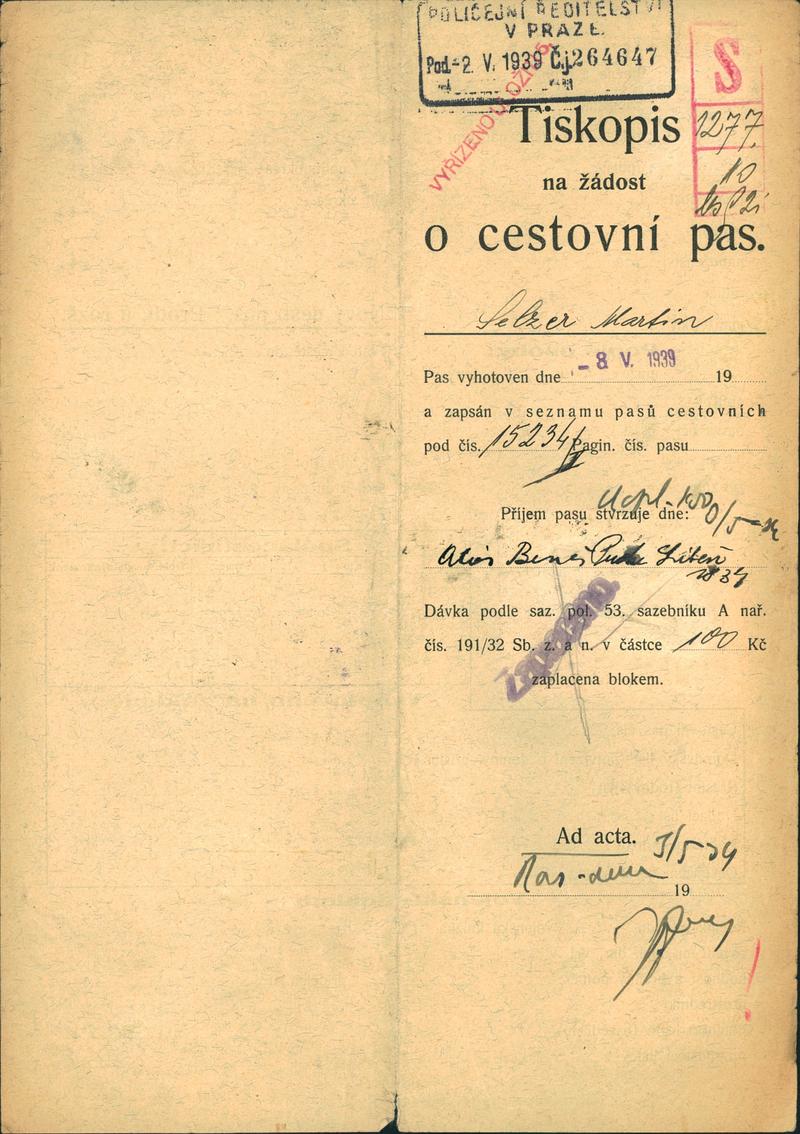 POLICEJNÍ ŘEDITELSTVÍ
V PRAZE.
Pod. -2. V. 1939 Č.j. 264647
VYŘÍZENO
S
1277
10
Tiskopis
na žádost
o cestovní pas.
Selzer Martin
Pas vyhotoven dne - 8 V. 1939 19
a zapsán v seznamu pasů cestovních
pod čís. 15234 Pagin. čís. pasu
Příjem pasu stvrzuje dne:
Alois Beneš
Dávka podle saz. pol. 53. sazebníku A nař.
čís. 191/32 Sb. z. a n. v částce 100 Kč
zaplacena blokem.
Ad acta.
19